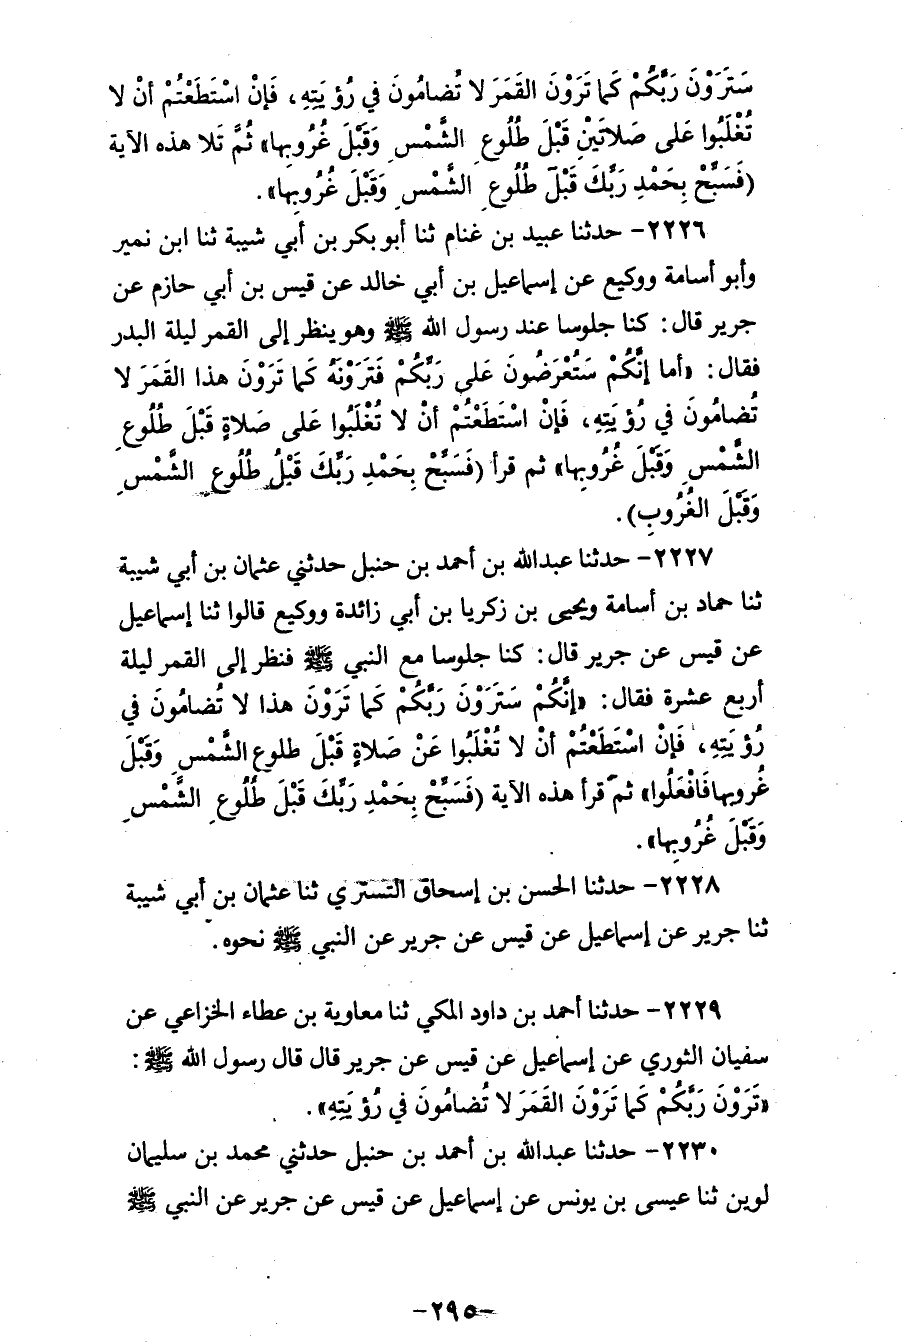 سَتَرَوْنَ رَبَّكُمْ كَما تَرَوْنَ القَمَرَ لا تُضامُونَ في رُؤيَتِهِ، فَإنْ اسْتَطَعْتُمْ أنْ لا
تُغْلَبُوا عَلى صَلاتَيْنِ قَبْلَ طُلُوعِ الشَّمْسِ وَقَبْلَ غُرُوبِها» ثُمَّ تَلا هذه الآية
(فَسَبَّحْ بِحَمْدِ رَبَّكَ قَبْلَ طُلُوعِ الشَّمْسِ وَقَبْلَ غُرُوبِها».
٢٢٢٦- حدثنا عبيد بن غنام ثنا أبو بكر بن أبي شيبة ثنا ابن نمير
وأبو أسامة ووكيع عن إسماعيل بن أبي خالد عن قيس بن أبي حازم عن
جرير قال: كنا جلوسا عند رسول الله ﷺ وهو ينظر إلى القمر ليلة البدر
فقال: «أما إنَّكُمْ سَتُعْرَضُونَ عَلى رَبَّكُمْ فَتَرَوْنَهُ كَما تَرَوْنَ هذا القَمَرَ لا
تُضامُونَ في رُؤيَتِهِ، فَإنْ اسْتَطَعْتُمْ أنْ لا تُغْلَبُوا عَلى صَلاةٍ قَبْلَ طُلُوعِ
الشَّمْسِ وَقَبْلَ غُرُوبِها» ثم قرأ (فَسَبَّحْ بِحَمْدِ رَبَّكَ قَبْلُ طُلُوعِ الشَّمْسِ
وَقَبْلَ الغُرُوبِ).
٢٢٢٧- حدثنا عبدالله بن أحمد بن حنبل حدثني عثمان بن أبي شيبة
ثنا حماد بن أسامة ويحيى بن زكريا بن أبي زائدة ووكيع قالوا ثنا إسماعيل
عن قيس عن جرير قال: كنا جلوسا مع النبي ﷺ فنظر إلى القمر ليلة
أربع عشرة فقال: «إنَّكُمْ سَتَرَوْنَ رَبَّكُمْ كَما تَرَوْنَ هذا لا تُضامُونَ في
رُؤيَتِهِ، فَإنْ اسْتَطَعْتُمْ أنْ لا تُغْلَبُوا عَنْ صَلاةٍ قَبْلَ طلوع الشَّمْسِ وَقَبْلَ
غُروبِها فَافْعَلُوا» ثم قرأ هذه الآية (فَسَبَّحْ بِحَمْدِ رَبَّكَ قَبْلَ طُلُوعِ الشَّمْسِ
وَقَبْلَ غُرُوبِها».
٢٢٢٨- حدثنا الحسن بن إسحاق التستري ثنا عثمان بن أبي شيبة
ثنا جرير عن إسماعيل عن قيس عن جرير عن النبي ﷺ نحوه.
٢٢٢٩- حدثنا أحمد بن داود المكي ثنا معاوية بن عطاء الخزاعي عن
سفيان الثوري عن إسماعيل عن قيس عن جرير قال قال رسول الله ﷺ:
«تَرَوْنَ رَبَّكُمْ كَما تَرَوْنَ القَمَرَ لا تُضامُونَ في رُؤيَتِهِ».
٢٢٣٠- حدثنا عبدالله بن أحمد بن حنبل حدثني محمد بن سليمان
لوين ثنا عيسى بن يونس عن إسماعيل عن قيس عن جرير عن النبي ﷺ
-٢٩٥-